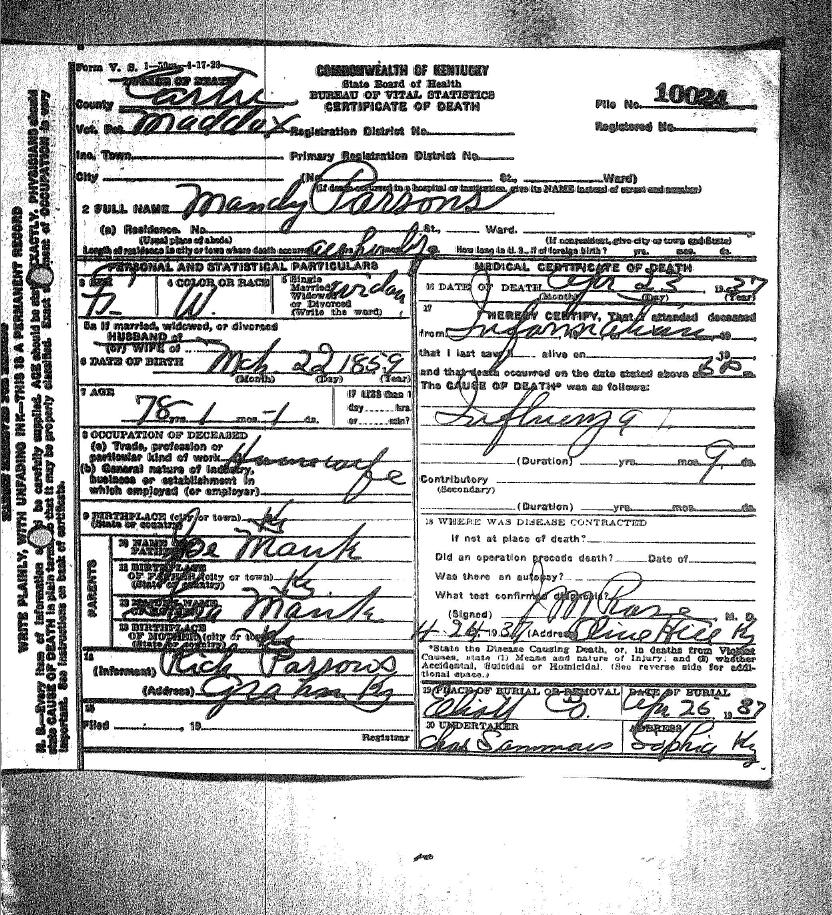 Form V. S. 1—50m—4-17-28
PLACE OF DEATH
COMMONWEALTH OF KENTUCKY
State Board of Health
BUREAU OF VITAL STATISTICS
CERTIFICATE OF DEATH
County Carter
File No. 10024
Vot. Pct. Maddox Registration District No.
Registered No.
Inc. Town Primary Registration District No.
City (No. St., Ward)
(If death occurred in a hospital or institution, give its NAME instead of street and number)
2 FULL NAME Mandy Parsons
(a) Residence. No. St., Ward.
(Usual place of abode) (If nonresident, give city or town and State)
Length of residence in city or town where death occurred ds. How long in U. S., if of foreign birth? yrs. mos. ds.
PERSONAL AND STATISTICAL PARTICULARS
3 SEX F. 4 COLOR OR RACE W. 5 Single Married Widowed or Divorced (Write the word)
5a If married, widowed, or divorced
HUSBAND of
(or) WIFE of
6 DATE OF BIRTH Mch 22 1859
(Month) (Day) (Year)
7 AGE 78 yrs. 1 mos. 1 ds.
If LESS than 1
day hrs.
or min?
8 OCCUPATION OF DECEASED
(a) Trade, profession or
particular kind of work Housewife
(b) General nature of industry,
business or establishment in
which employed (or employer)
9 BIRTHPLACE (city or town) Ky
(State or country)
PARENTS
10 NAME OF FATHER Joe Mauk
11 BIRTHPLACE
OF FATHER (city or town) Ky
(State or country)
12 MAIDEN NAME
OF MOTHER Mauk
13 BIRTHPLACE
OF MOTHER (city or town) Ky
(State or country)
14
(Informant) Rich Parsons
(Address) Grahn Ky
15
Filed , 19
Registrar
MEDICAL CERTIFICATE OF DEATH
16 DATE OF DEATH Apr 23 1937
(Month) (Day) (Year)
17
I HEREBY CERTIFY, That I attended deceased
from Information 19
that I last saw h alive on 19
and that death occurred on the date stated above at 6 P
The CAUSE OF DEATH* was as follows:
Influenza
(Duration) yrs. mos. 9 ds.
Contributory
(Secondary)
(Duration) yrs. mos. ds.
18 WHERE WAS DISEASE CONTRACTED
If not at place of death?
Did an operation precede death? Date of
Was there an autopsy?
What test confirmed diagnosis?
(Signed) J M Rose M. D.
4 24 1937 (Address) Olive Hill Ky
*State the Disease Causing Death, or, in deaths from Violent
Causes, state (1) Means and nature of Injury; and (2) whether
Accidental, Suicidal or Homicidal. (See reverse side for addi-
tional space.)
19 PLACE OF BURIAL OR REMOVAL DATE OF BURIAL
Elliott Co. Apr 26 1937
20 UNDERTAKER ADDRESS
Chas Sammons Sophie Ky
WRITE PLAINLY, WITH UNFADING INK—THIS IS A PERMANENT RECORD
N. B.—Every item of information should be carefully supplied. AGE should be stated EXACTLY. PHYSICIANS should
state CAUSE OF DEATH in plain terms, so that it may be properly classified. Exact statement of OCCUPATION is very
important. See instructions on back of certificate.